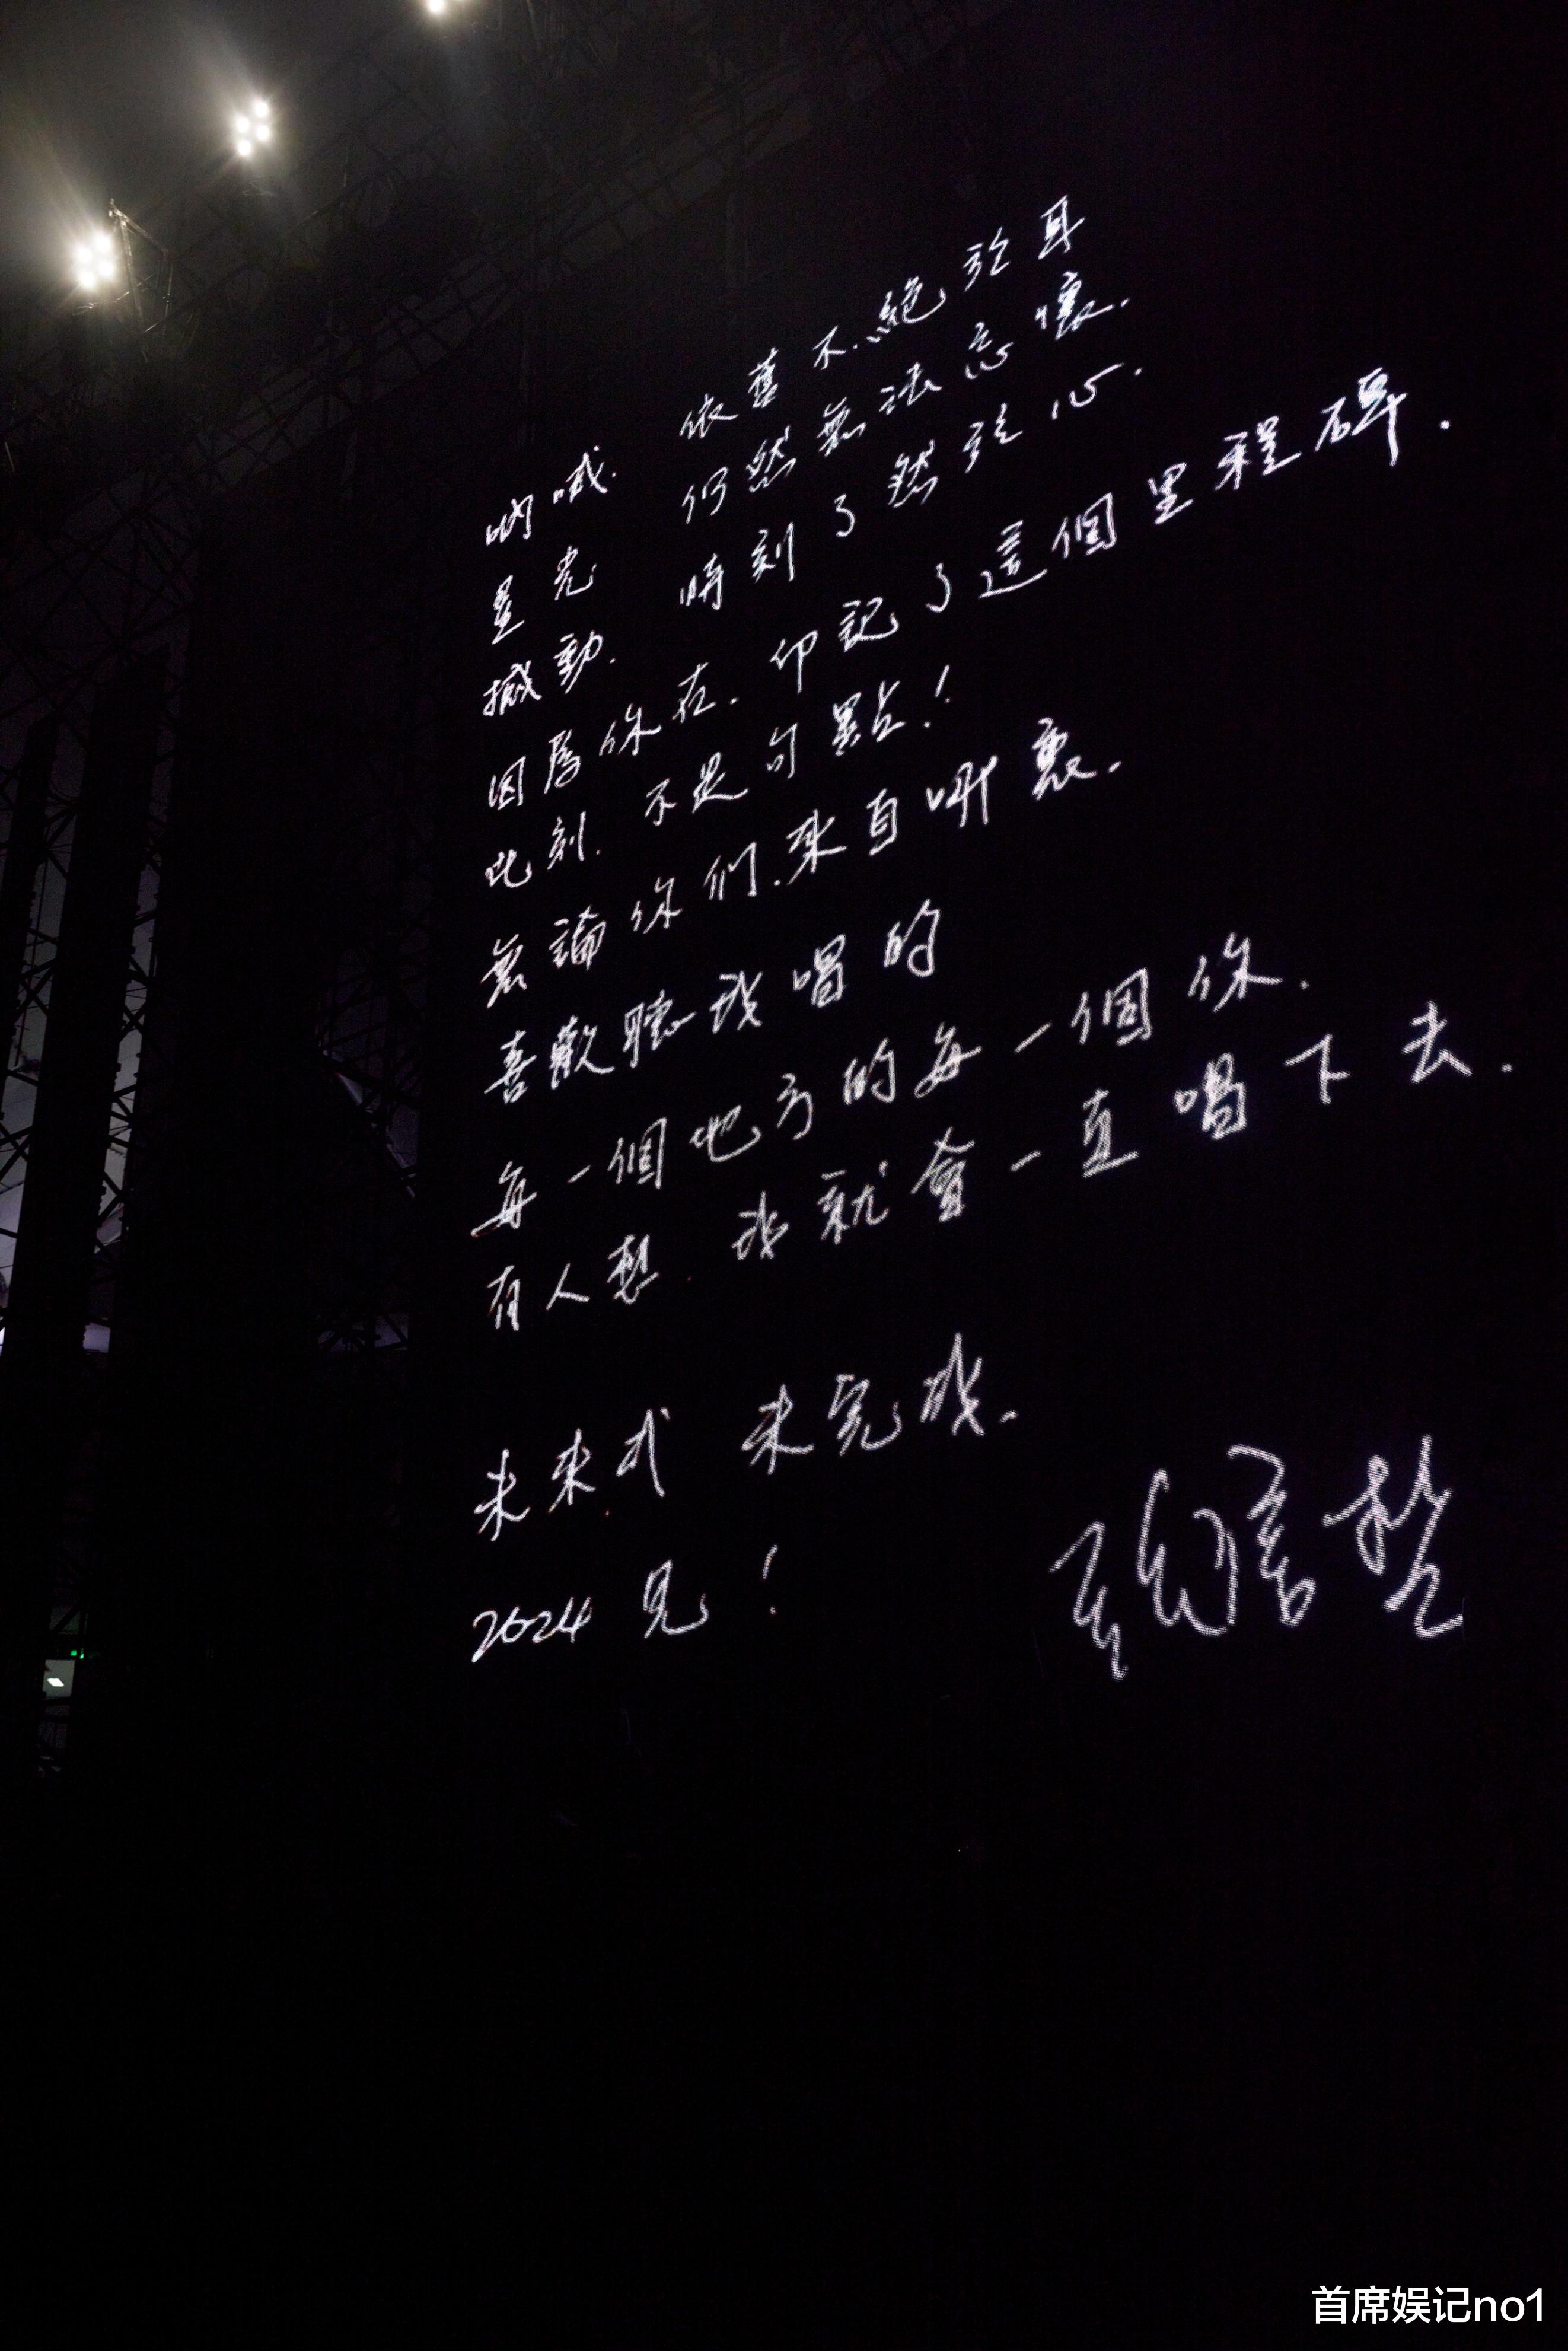 吶喊. 依舊不絕於耳
星光 仍然無法忘懷.
撼動. 時刻了然於心.
因為你在. 印記了這個里程碑.
此刻. 不是句點!
無論你們.來自哪裏.
喜歡聽我唱的
每一個地方的每一個你.
有人想. 我就會一直唱下去.
未來式 未完成.
2024 見!
張信哲
首席娱记no1